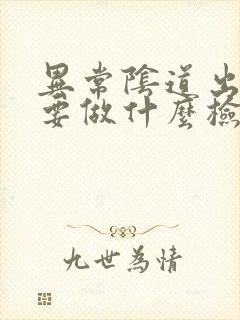 異常陰道出
要做什麼檢
九世為情